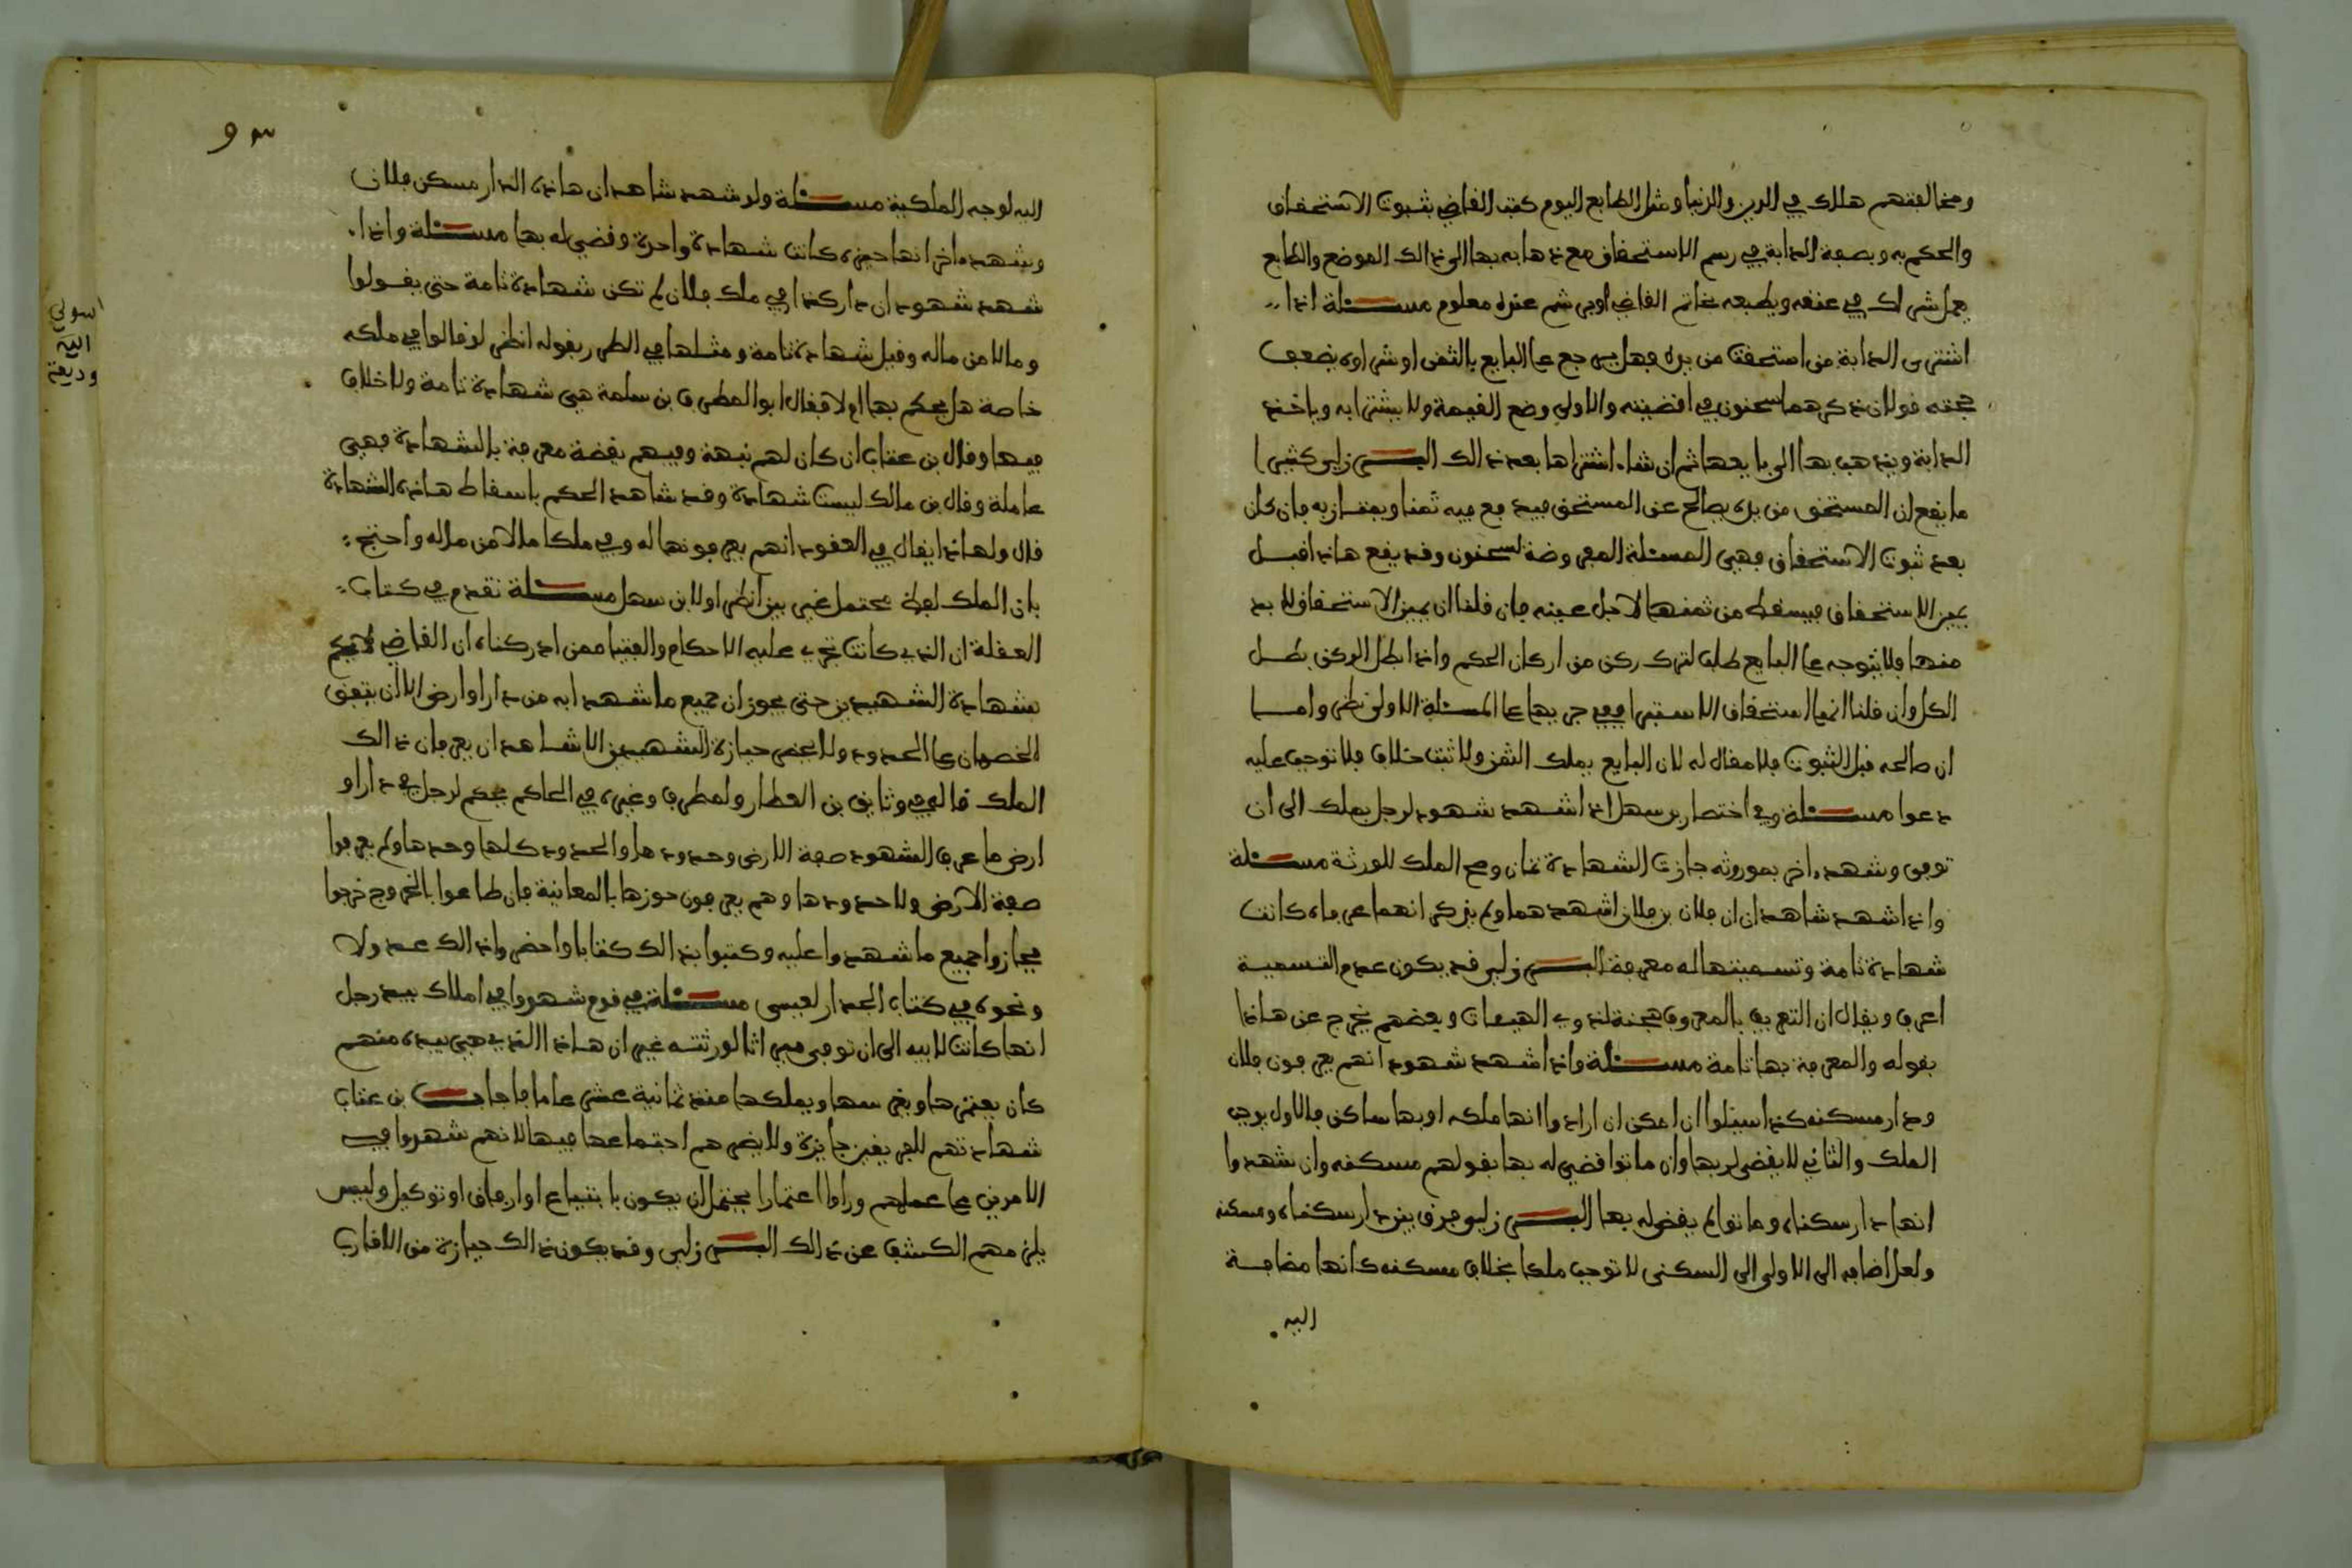 ومخالفتهم هلاك في الدين والدنيا ومثل الطابع اليوم كتب القاضي بثبوت الاستحقاق
والحكم به وبصفة الدابة في رسم الاستحقاق مع ذهابه بها الى ذالك الموضع والطابع
يعمل شراك في عنقه ويطبعه بخاتم القاضي او بي شمع عنده معلوم مسئلة اذا
اشترى الدابة من استحقت من يده فهل يرجع على البايع بالثمن او شراوه يضعف
حجته قولان ذكرهما سحنون في اقضيته والاولى وضع القيمة ولا يشترى به وياخذ
الدابة ويذهب بها الى بايعها ثم ان شاء اشتراها بعد ذالك البرزلي كثيرا
ما يقع ان المستحق من يده يصالح عن المستحق فيدفع فيه ثمنا ويمتاز به فان كان
بعد ثبوت الاستحقاق فهي المسئلة المعروضة لسحنون وقد يقع هاذا قبل
يمين الاستحقاق فيسقط من ثمنها لاجل عينه فان قلنا ان يمين الاستحقاق لا بد
منها فلا يتوجه على البايع طلب لترك ركن من اركان الحكم واذا بطل الركن بطل
الكل وان قلنا انما استحقاق الاستبرا فيجري بها على المسئلة الاولى نظر واما
ان صالحه قبل الثبوت فلا مقال له لان البايع يملك الثمن ولا ثبت خلاف فلا توجب عليه
دعوا مسئلة وفي اختصار بن سهل اذا شهد شهود لرجل بملك الى ان
توفي وشهد اخر بموروثه جازت الشهادة تان وصح الملك للورثة مسئلة
واذا شهد شاهدان ان فلان بن فلان اشهدهما ولم يذكر انهما عرفاه كانت
شهادة تامة وتسميتها له معرفة البرزلي قد يكون عدم التسمية
اعرف ويقال ان التعريف بالمعروف هجنة لذوي الهيئات وبعضهم يخرج عن هاذا
بقوله والمعرفة بها تامة مسئلة واذا شهد شهود انهم يعرفون فلان
ودار مسكنه كذا سيلوا ان امكن ان ارادوا انها ملكه او بها ساكن فالاول يوجب
الملك والثاني لا يقضي له بها وان ماتوا قضي له بها بقولهم مسكنه وان شهدوا
انها دار سكناه وماتوا لم يقض له بها البرزلي وفرق بين دار سكناه ومسكنه
ولعل اضافه الى الاولى الى السكنى لا توجب ملكا بخلاف مسكنه كانها مضافة
اليه
٩٣
اليه لوجه الملكية مسئلة ولو شهد شاهد ان هاذه الدار مسكن فلان
وشهد اخر انها حيزه كانت شهادة واحدة وقضي له بها مسئلة واذا
شهد شهود ان دار كذا في ملك فلان لم تكن شهادة تامة حتى يقولوا
ومالا من ماله وقيل شهادة تامة ومثلها في الطرر بقوله انظر لو قالوا في ملكه
خاصة هل يحكم بها ام لا فقال ابو المطرف بن سلمة هي شهادة تامة ولا خلاف
فيها وقال بن عتاب ان كان لهم نبهة وفيهم يقضة معرفة بالشهادة فهي
عاملة وقال بن مالك ليست شهادة وقد شاهد الحكم باسقاط هاذه الشهادة
قال ولهاذا يقال في العقود انهم يعرفونها له وفي ملكا مالا من ماله واحتج
بان الملك لفظ محتمل غير بين انظر اولا بن سهل مسئلة تقدم في كتاب
العقلة ان الذي كانت تجري عليه الاحكام والفتيا ممن ادركناه ان القاضي لا يحكم
بشهادة الشهيدين حتى يحوزان جميع ما شهدا به من دار او ارض الا ان يتفق
الخصمان على الحدود ولا يحضر حيازة الشهيدين الا شاهدان يعرفان ذالك
الملك قال في وثايق بن العطار ولمطرف وغيره في الحاكم يحكم لرجل في دار او
ارض ما عرف الشهود صفة الارض وحدودها والحدود كلها وحدها ولم يعرفوا
صفة الارض ولا حدودها وهم يعرفون حوزها بالمعاينة فان طاعوا بالخروج خرجوا
فحازوا جميع ما شهدوا عليه وكتبوا بذالك كتابا واحضروا ذالك عدولا
ونحوه في كتاب الجدار لعيسى مسئلة في قوم شهدوا في املاك بيد رجل
انها كانت لابيه الى ان توفي ميراثا لورثته غير ان هاذا الذي هي بيده منهم
كان يعتمرها ويغرسها ويملكها منذ ثمانية عشر عاما فاجاب بن عتاب
شهادتهم للفريقين جايزة ولا يضرهم اجتماعها فيها لانهم شهدوا في
الامرين على عملهم وراوا اعتمارا يحتمل ان يكون بابتياع او ارفاق او توكيل وليس
يلزمهم الكشف عن ذالك البرزلي وقد يكون ذالك حيازة من الاقارب
اسولي
اليه
وديعة